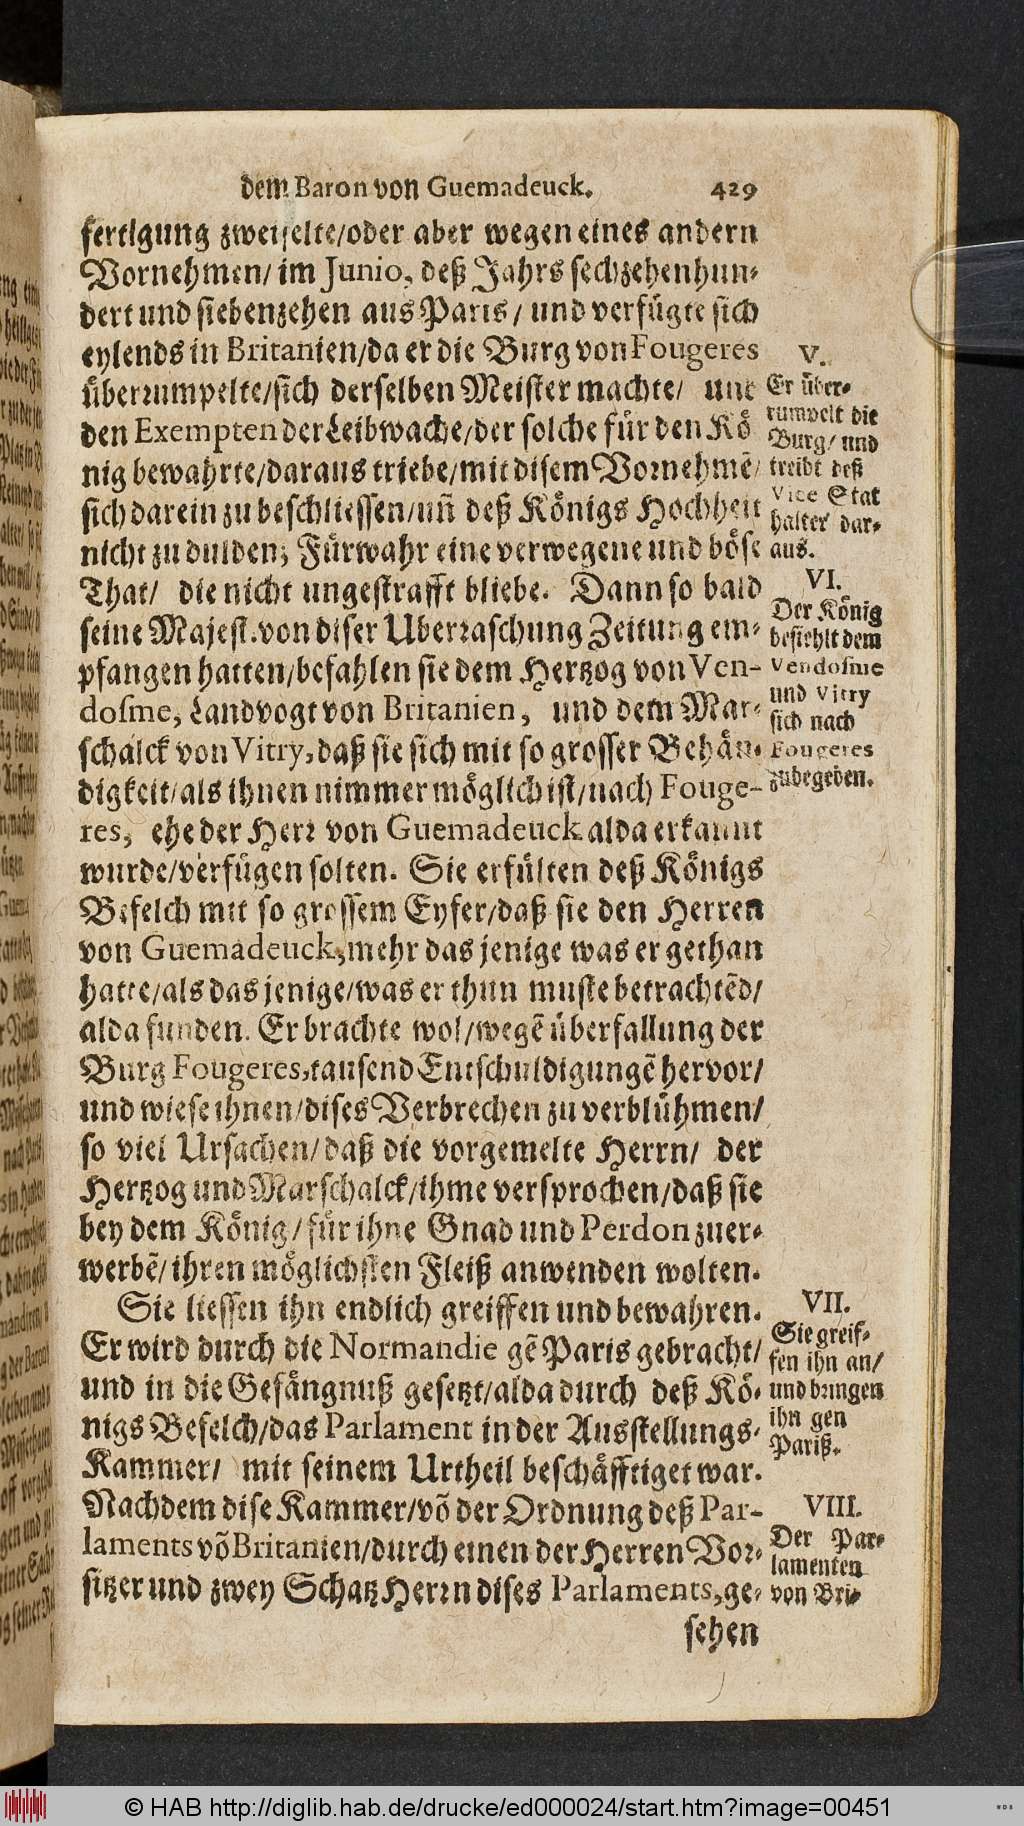 dem Baron von Guemadeuck. 429
fertigung zweifelte/oder aber wegen eines andern
Vornehmen/ im Junio, deß Jahrs sechzehenhun-
dert und siebenzehen aus Paris/ und verfügte sich
eylends in Britanien/da er die Burg von Fougeres
überrumpelte/sich derselben Meister machte/ und
den Exempten der Leibwache/der solche für den Kö
nig bewahrte/daraus triebe/mit disem Vornehmē/
sich darein zu beschliessen/uñ deß Königs Hochheit
nicht zu dulden; Fürwahr eine verwegene und böse
That/ die nicht ungestrafft bliebe. Dann so bald
seine Majest. von diser Uberraschung Zeitung em-
pfangen hatten/befahlen sie dem Hertzog von Ven-
dosme, Landvogt von Britanien, und dem Mar-
schalck von Vitry, daß sie sich mit so grosser Behän-
digkeit/als ihnen nimmer möglich ist/nach Fouge-
res, ehe der Herr von Guemadeuck alda erkannt
wurde/verfügen solten. Sie erfülten deß Königs
Befelch mit so grossem Eyfer/daß sie den Herren
von Guemadeuck, mehr das jenige was er gethan
hatte/als das jenige/was er thun muste betrachtēd/
alda funden. Er brachte wol/wegē überfallung der
Burg Fougeres, tausend Entschuldigungē hervor/
und wiese ihnen/dises Verbrechen zu verblühmen/
so viel Ursachen/daß die vorgemelte Herrn/ der
Hertzog und Marschalck/ihme versprochen/daß sie
bey dem König/für ihne Gnad und Perdon zuer-
werbē/ihren möglichsten Fleiß anwenden wolten.
Sie liessen ihn endlich greiffen und bewahren.
Er wird durch die Normandie gē Paris gebracht/
und in die Gefängnuß gesetzt/alda durch deß Kö-
nigs Befelch/das Parlament in der Ausstellungs-
Kammer/ mit seinem Urtheil beschäfftiget war.
Nachdem dise Kammer/vō der Ordnung deß Par-
laments vō Britanien/durch einen der Herren Vor-
sitzer und zwey Schatz Herrn dises Parlaments, ge-
sehen
V.
Er über-
rumpelt die
Burg/ und
treibt deß
Vice Stat
halter dar-
aus.
VI.
Der König
befiehlt dem
Vendosme
und Vitry
sich nach
Fougeres
zubegeben.
VII.
Sie greif-
fen ihn an/
und bringen
ihn gen
Pariß.
VIII.
Der Par-
lamenten
von Bri-
© HAB http://diglib.hab.de/drucke/ed000024/start.htm?image=00451